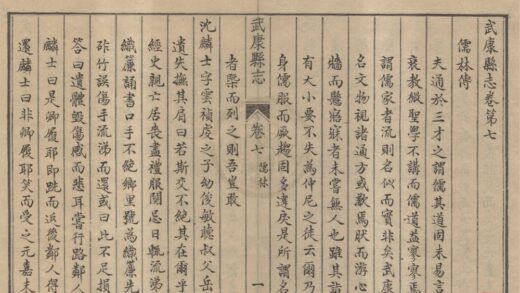 武康縣志卷第七
儒林傳
夫通於三才之謂儒其道固未易言
衰教缺聖學不講而儒道益寥寥焉
謂儒家者流則名似而實非矣武康
名文物視諸通方或歉焉狀而游心
牆而懸寤寐者未嘗無人也雖其詣
有大小要不失為仲尼之徒云爾乃
身儒服而厥趨固多違戾是所謂名
武康縣志
卷七
儒林
一
者槩而列之則吾豈敢
沈麟士字雲禎虔之子幼俊敏聽叔父岳
遺失撫其肩曰若斯文不絕其在爾乎
經史親亡居喪盡禮服闋忌日輒流涕
織簾誦書口手不絕鄉里號為織簾先
斫竹誤傷手流涕而還或曰此不足損
答曰遺體毀傷感而悲耳嘗行路鄰人
麟士曰是卿屨耶即跣而返後鄰人得
還麟士曰非卿屨耶笑而受之元嘉末